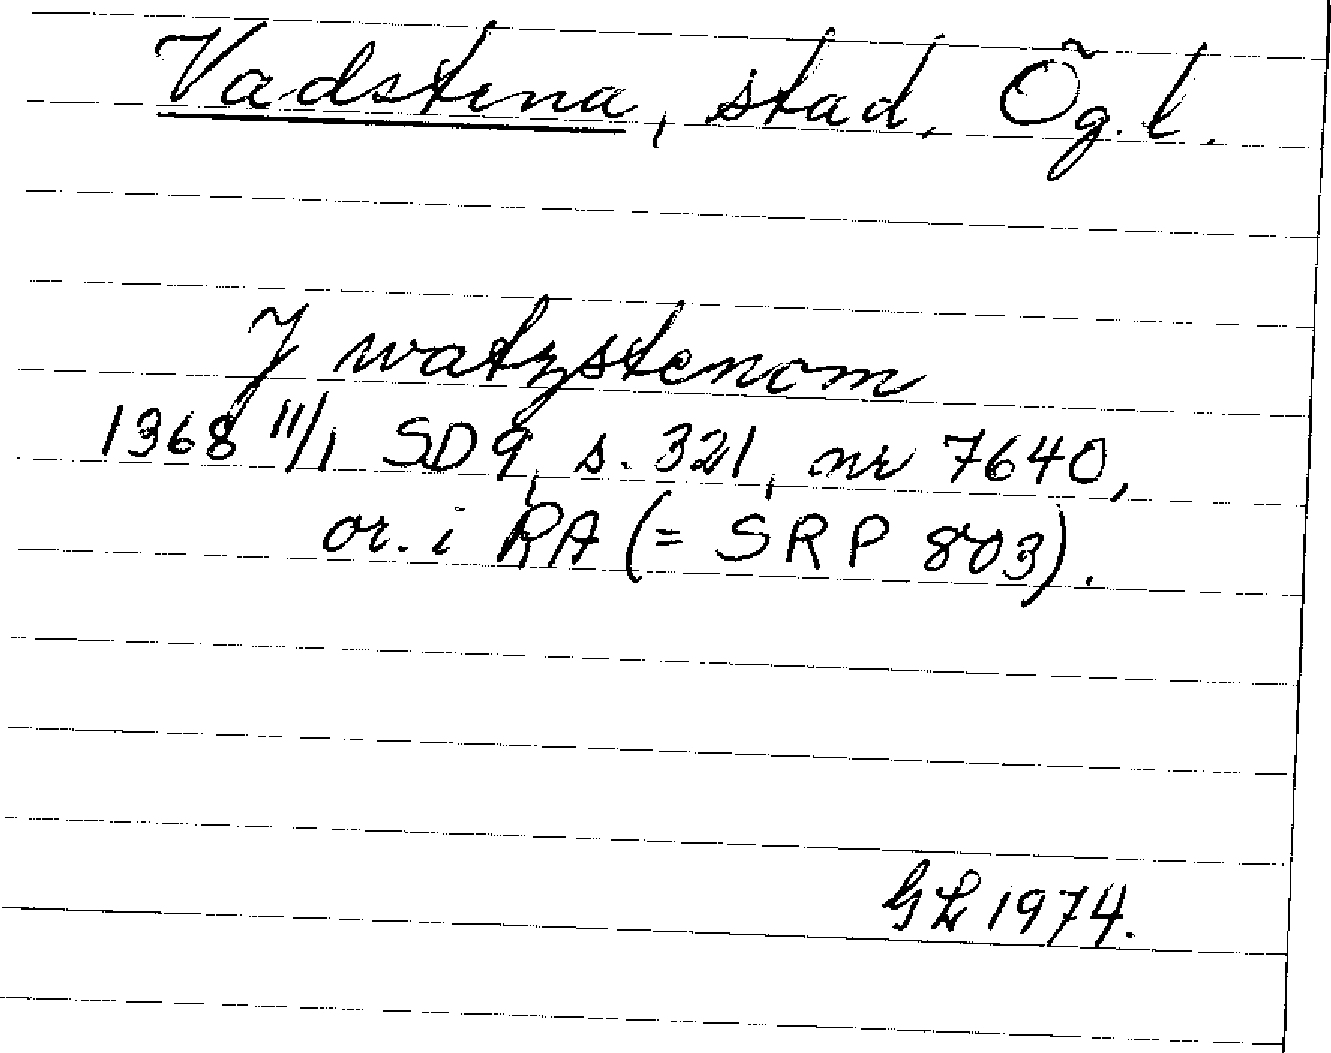 Vadstena, stad, Ög. l.
J watzstenom
1368 11/1 SD 9, s. 321, nr 7640,
or. i RA (= SRP 803).
GL 1974.